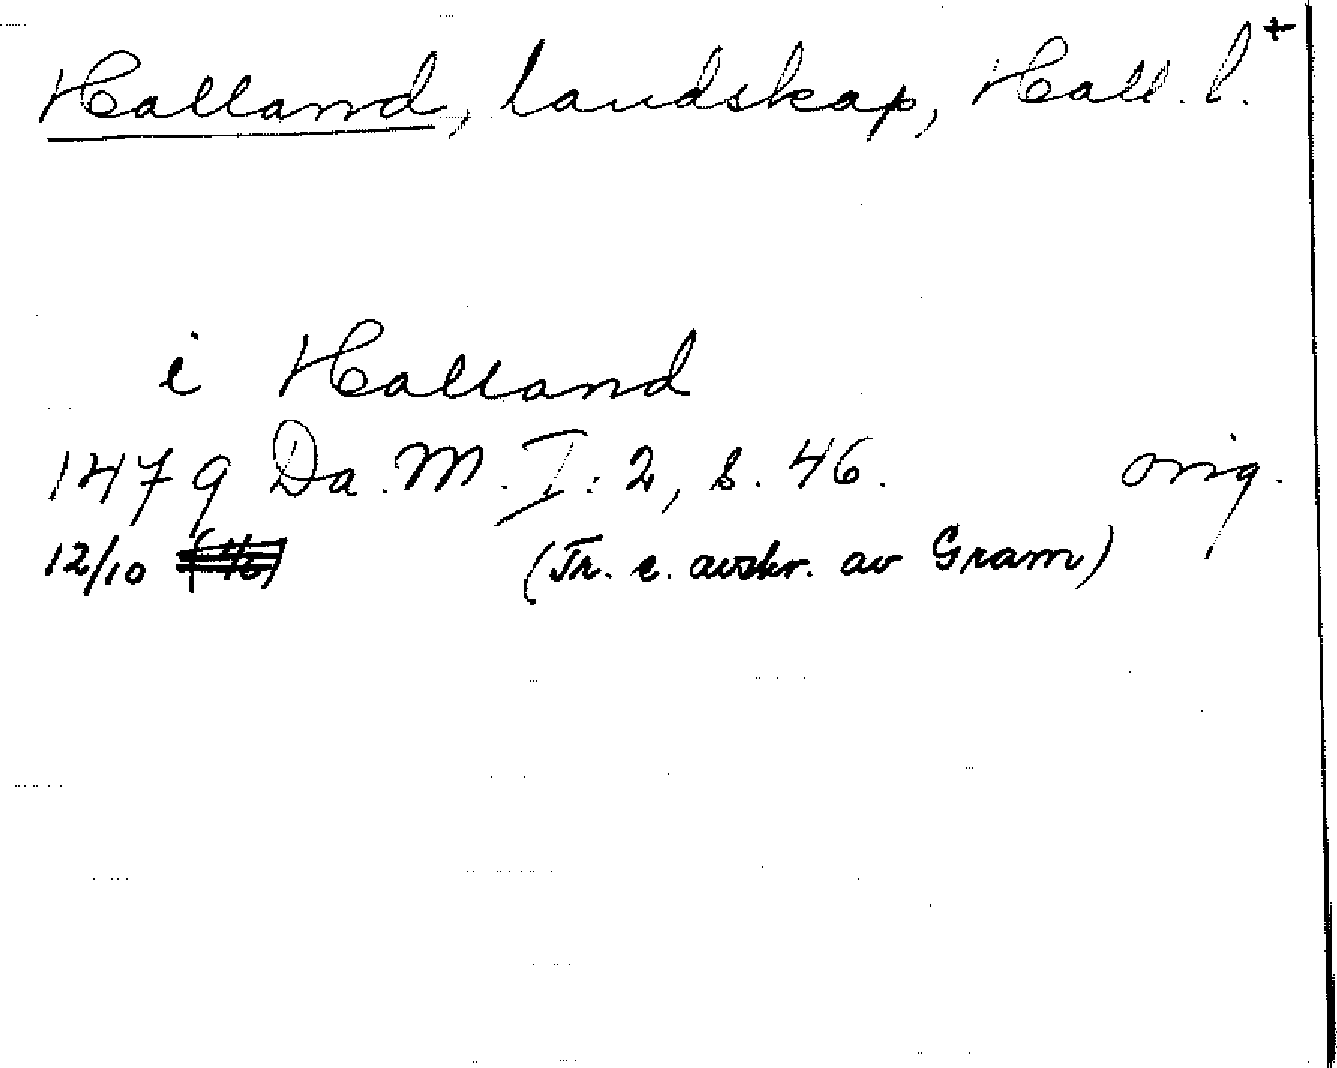 Halland, landskap, Hall. l. +
i Halland
1479 Da. M. I: 2, s. 46. orig.
12/10 (Tr. e. avskr. av Gram)